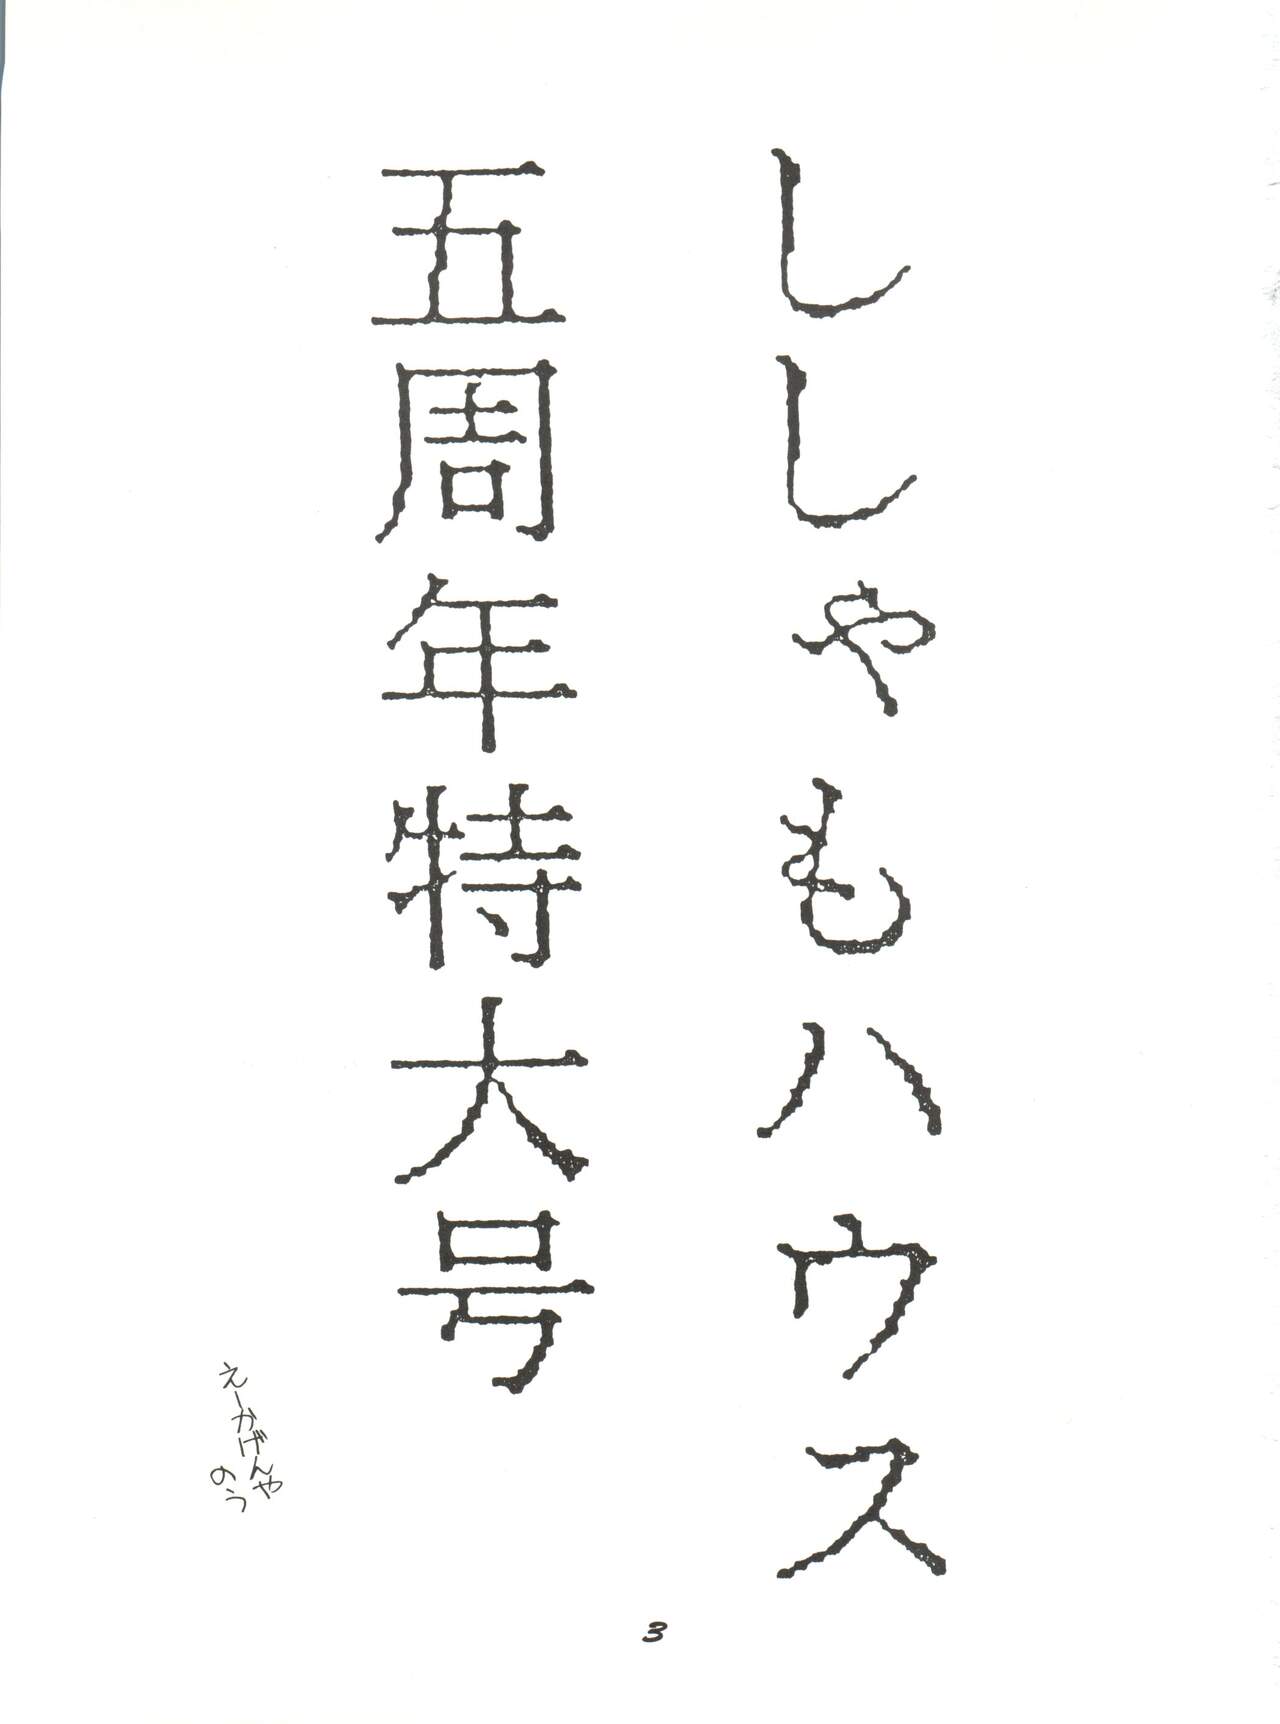 ししゃもハウス
五周年特大号
えーかげんや
のう
3